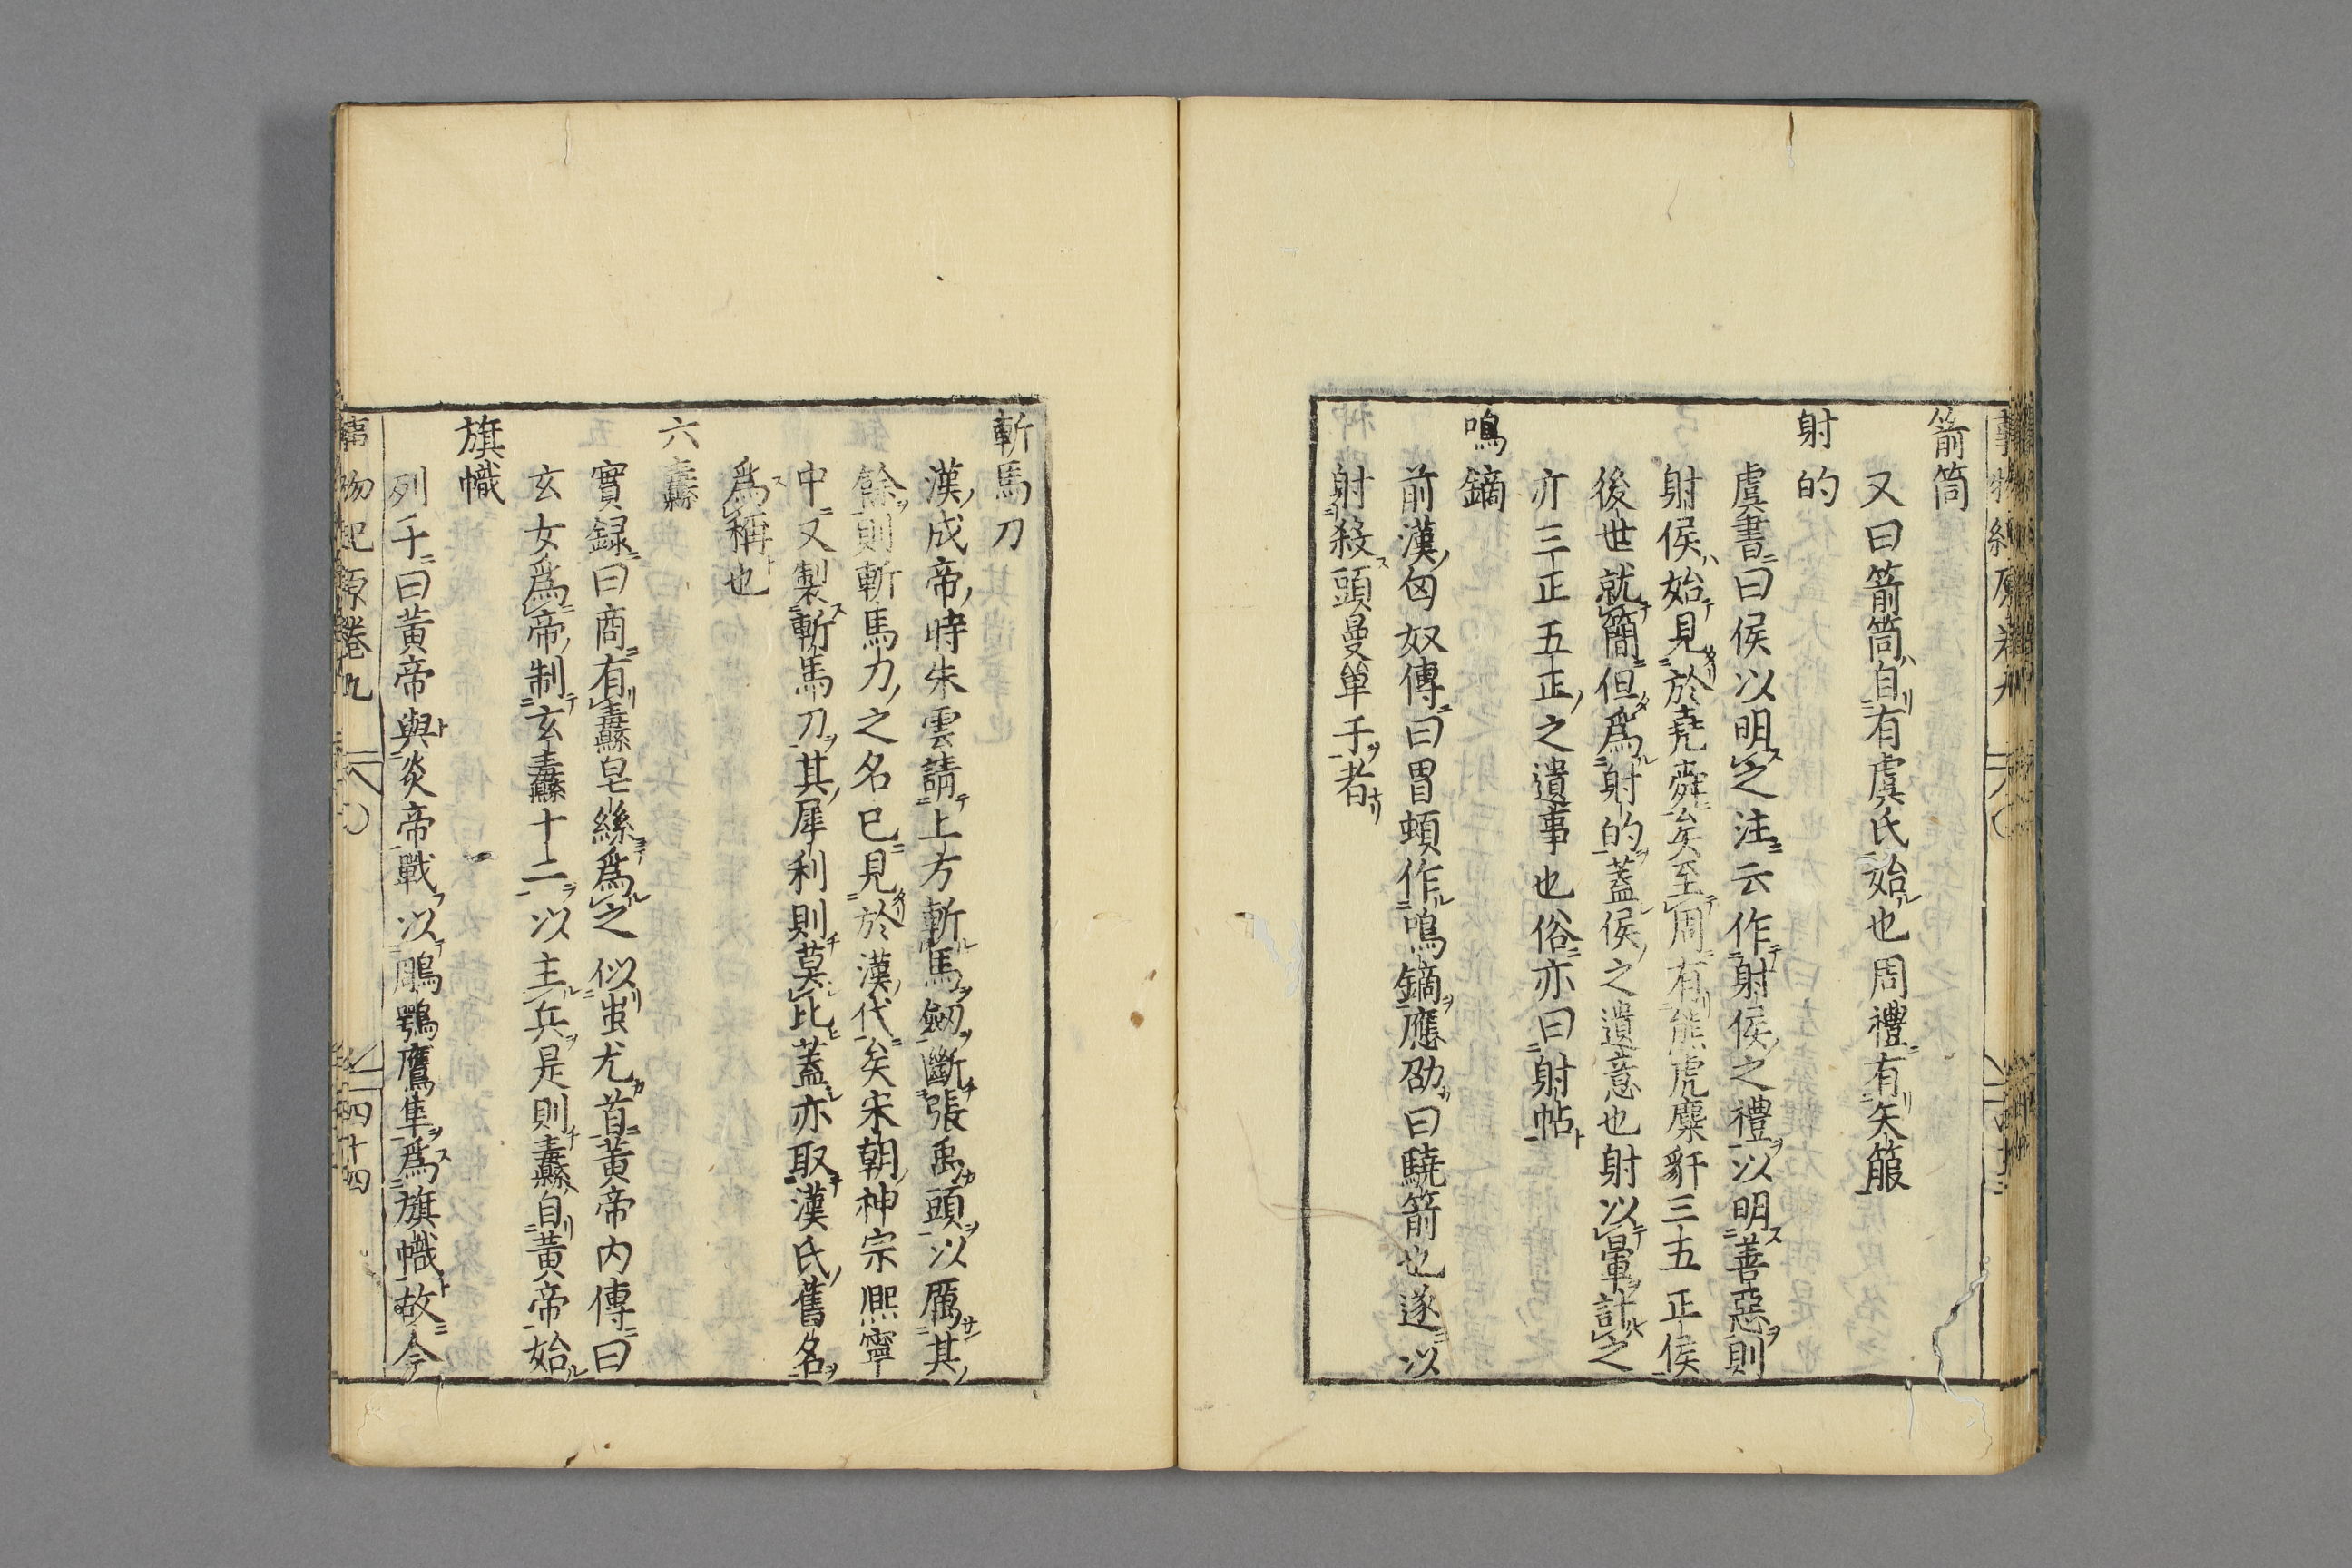 箭筒
又曰箭筒自有虞氏始也周禮有矢箙
射的
虞書曰侯以明之注云作射侯之禮以明善惡則
射侯始見於堯舜矣至周有熊虎麋豻三五正侯
後世就簡但爲射的蓋侯之遺意也射以暈計之
亦三正五正之遺事也俗亦曰射帖
鳴鏑
前漢匈奴傳曰冒頓作鳴鏑應劭曰驍箭也遂以
射殺頭曼單于者
斬馬刀
漢成帝時朱雲請上方斬馬劔斷張禹頭以厲其
餘則斬馬刀之名已見於漢代矣宋朝神宗熈寧
中又製斬馬刀其犀利則莫比蓋亦取漢氏舊名
爲稱也
六纛
實録曰商有纛皂絲爲之似蚩尤首黄帝内傳曰
玄女爲帝制玄纛十二以主兵是則纛自黄帝始
旗幟
列子曰黄帝與炎帝戰以鵰鶚鷹隼爲旗幟故今
事物紀原卷九 四十四